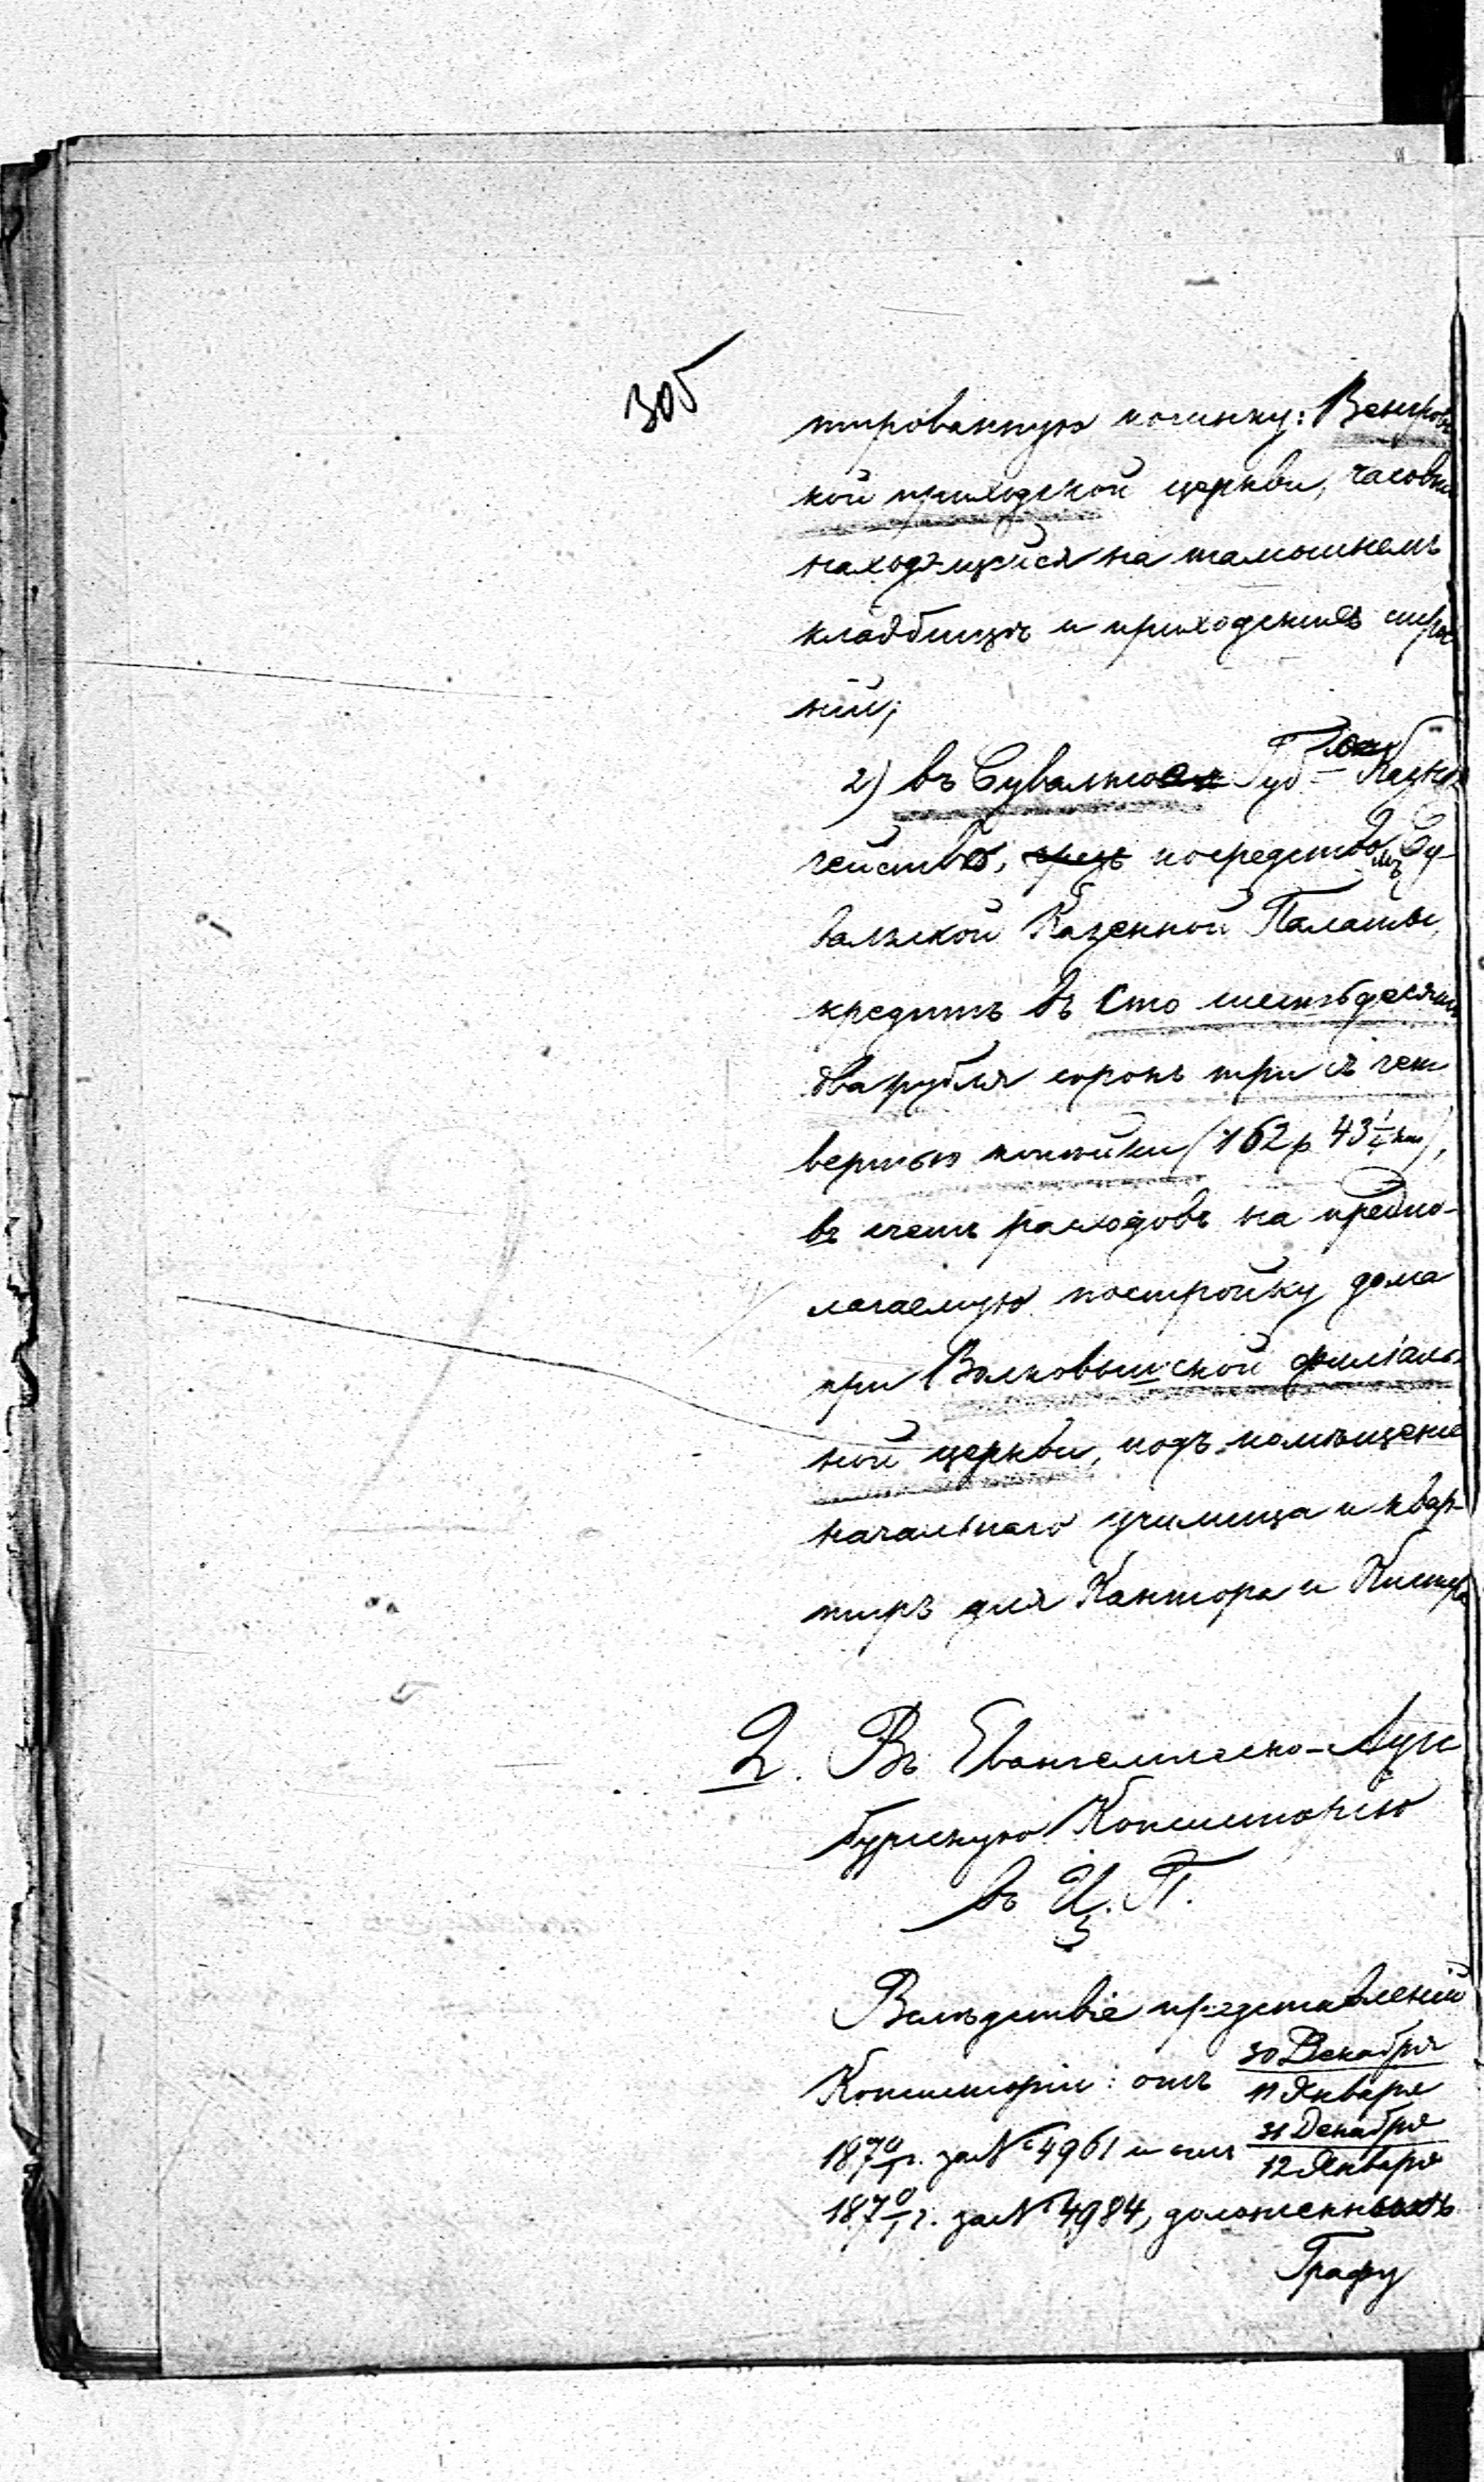 305
тированную починку: Венгровс
кой приходской церкви, часовни
находящейся на тамошнемъ
кладбищѣ и приходскихъ строе
ній;
2) въ Сувалкск Губ. Казна
чейство, чрезъ посредствомъ Су-
валкской Казенной Палаты,
кредитъ въ сто шестьдесятъ
два рубля сорокъ три съ чет
вертью копѣйки (162 р 43 1/4 коп),
въ счетъ расходовъ на предпо-
лагаемую постройку дома
при Волковышской филіаль
ной церкви, подъ помѣщеніе
начальнаго училища и квар-
тиръ для Кантора и Кистера
2. Въ Евангелическо-Аугс
бургскую Консисторію
въ Ц. П.
Вслѣдствіе представленій
Консисторіи: отъ 30 Декабря / 11 Января
1870/1 г. за № 4961 и отъ 31 Декабря / 12 Января
1870/1 г. за № 4984, доложенныхъ
Графу